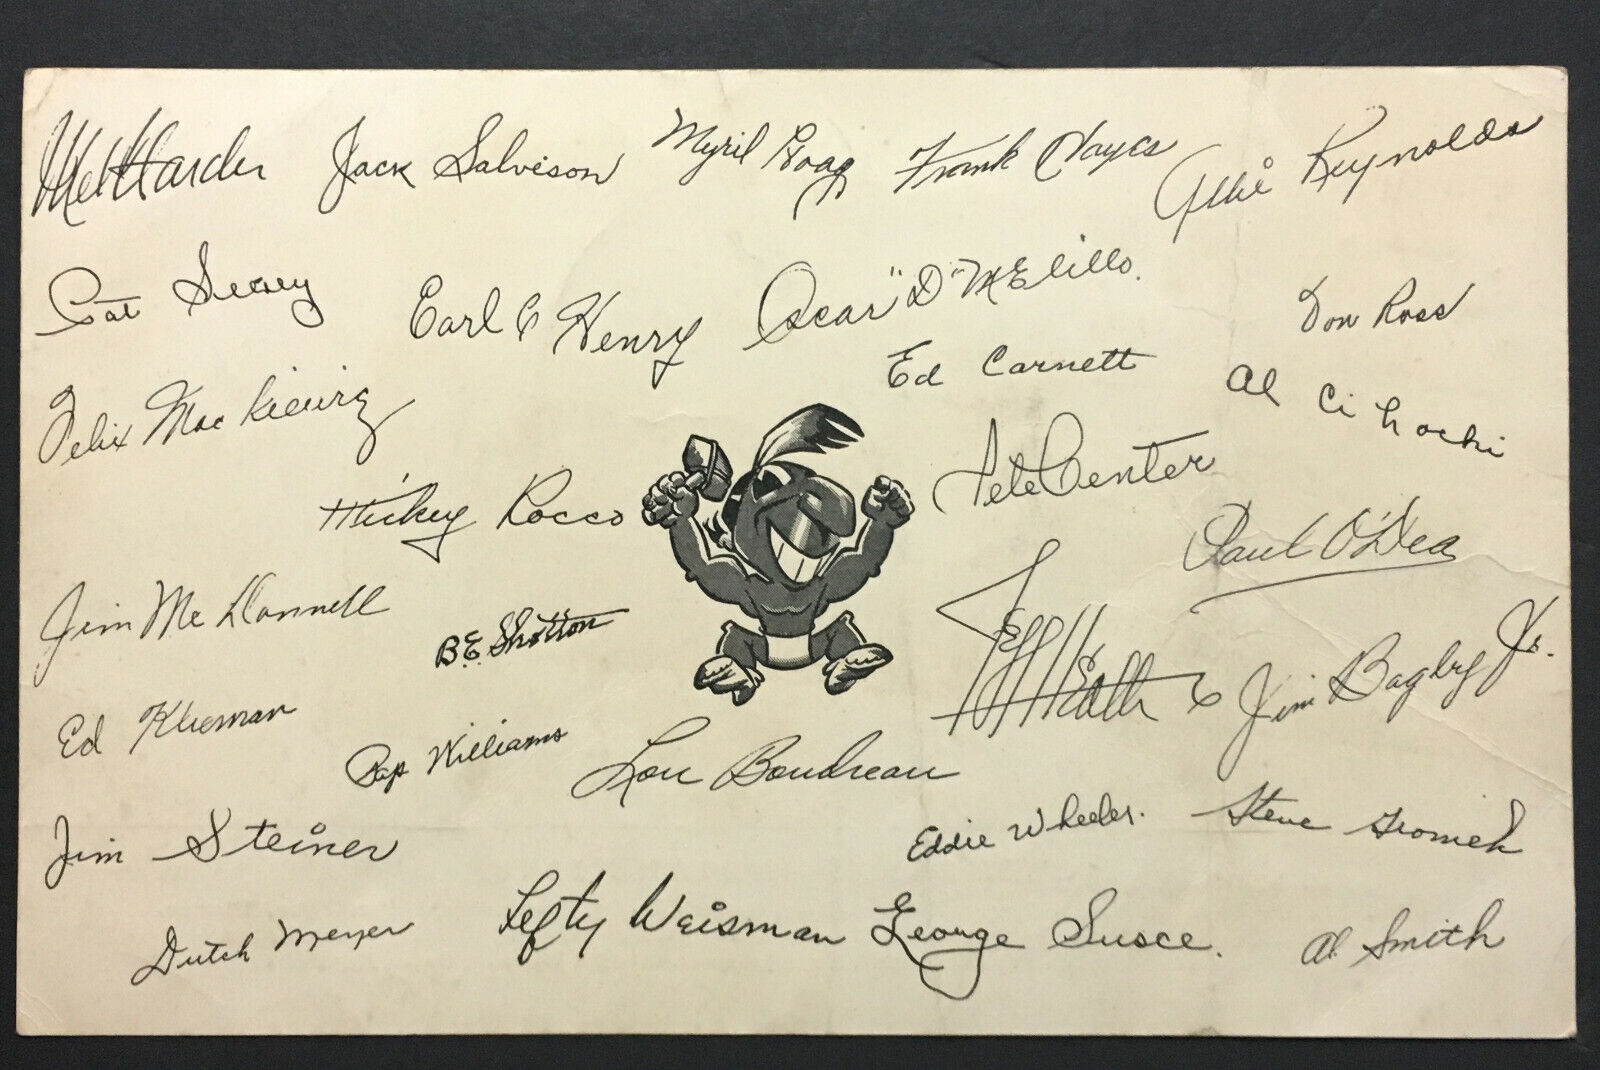 Mel Harder
Jack Salveson
Myril Hoag
Frank Hayes
Allie Reynolds
Pat Seerey
Earl C Henry
Oscar "D" Melillo.
Don Ross
Ed Carnett
Al Cihocki
Felix Mackiewicz
Mickey Rocco
Pete Center
Paul O'Dea
Jim McDonnell
B.E. Shotton
Jeff Heath
Jim Bagby Jr.
Ed Klieman
Pap Williams
Lou Boudreau
Jim Steiner
Eddie Wheeler.
Steve Gromek
Dutch Meyer
Lefty Weisman
George Susce.
Al Smith